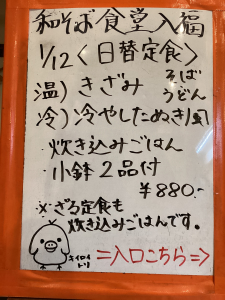 和そば食堂入福
1/12〈日替定食〉
温)きざみ そば
冷)冷やしたぬき うどん
・炊き込みごはん
・小鉢2品付
¥880.-
※ざる定食も
炊き込みごはんです。
キイロイ
トリ
=入口こちら=>